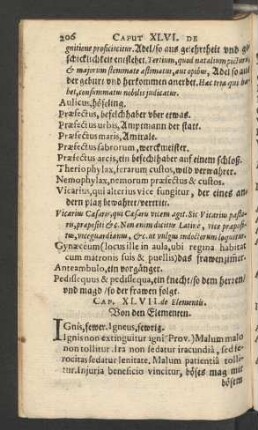 206 CAPUT XLVI. DE
gnitione proficiscitur. Adel / so aus gelehrtheit vnd ge-
schicklichkeit entstehet. Tertium, quod natalium
& majorum stemmate æstimatur, aut opibus, Adel so aus
der geburt vnd herkommen anerbet. Hæc tria qui ha-
bet, consummatus nobilis judicatur.
Aulicus, höfeling.
Præfectus, befelchhaber vber etwas.
Præfectus urbis, Amptmann der statt.
Præfectus maris, Amiral.
Præfectus fabrorum, werckmeister.
Præfectus arcis, ein befelchhaber auf einem schloß.
Theriophylax, ferarum custos, wild verwahrer.
Nemophylax, nemorum præfectus & custos.
Vicarius, qui alterius vice fungitur, der eines an-
dern platz bewahret / vertritt.
Vicarius Cæsaris, qui Cæsaris vicem agit. Sic Vicarius
ris, præpositi &c. Non enim dicitur Latinè, vice
tus, viceguardianus, &c. ut vulgus indoctorum loquitur.
Gynæceum (locus ille in aula, ubi regina habitat
cum matronis suis & puellis) das frawenzimer.
Anteambulo, ein vorgänger.
Pedissequus & pedissequa, ein knecht / so dem herren /
vnd magd / so der frawen folgt.
CAP. XLVII. de Elementis.
Von den Elementen.
IGnis, fewer. Igneus, fewrig.
Ignis non extinguitur igni (Prov.) Malum malo
non tollitur. Ira non sedatur iracundiâ, sed fe-
rocitas sedatur lenitate. Malum patientiâ tolli-
tur. Injuria beneficio vincitur, böses mag mit
bösem